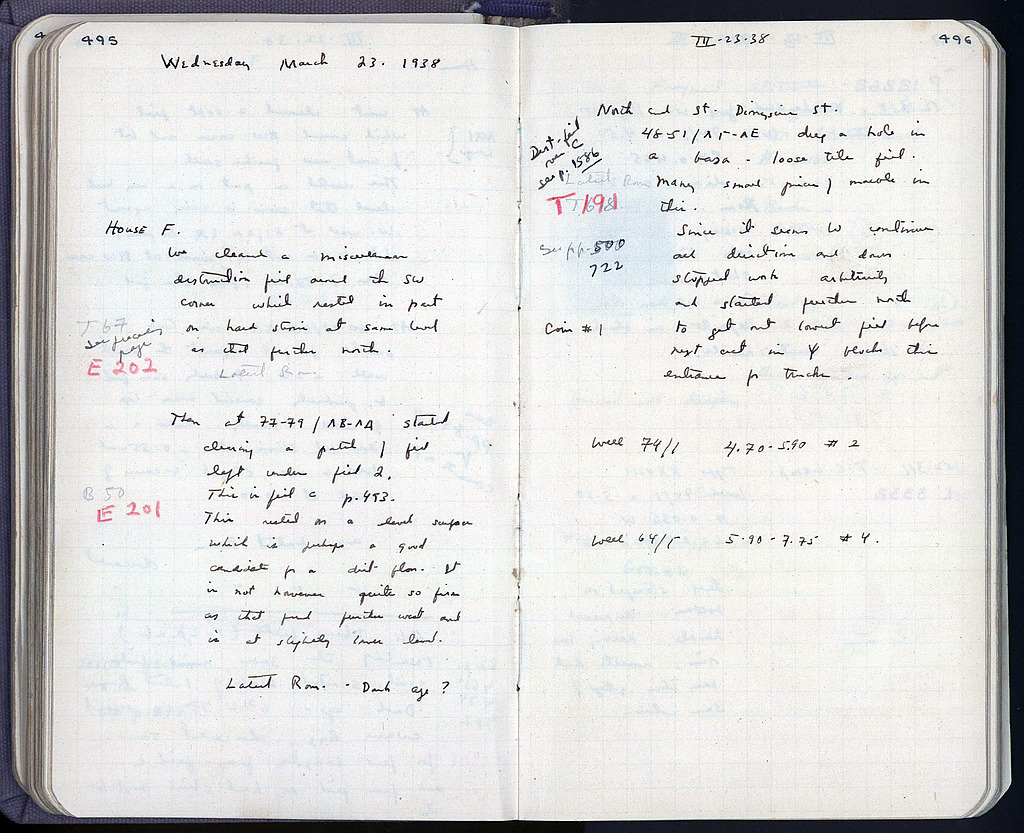 495
Wednesday March 23. 1938
House F.
We cleaned a miscellaneous
destruction fill around the SW
corner which rested in part
on hard stroses at same level
as that further north.
Latest Rom.
T 67
see preceding
page
E 202
Then at 77-79/ΛΒ-ΛΑ started
cleaning a patch of fill
left under fill 2.
This is fill c p. 493.
B 50
E 201
This rested on a level surface
which is perhaps a good
candidate for a dirt floor. It
is not however quite so firm
as that found further west and
is at slightly lower level.
Latest Rom. - Dark age?
III-23-38
496
North end St. Dionysius St.
48-51/ΛΓ-ΛΕ dug a hole in
a loose tile fill.
Many small pieces of marble in
this.
Dest. fill
over C
see p. 1586
Latest Rom
T 191
T 698
Since it seems to continue
all directions and down
stopped work arbitrarily
and started further north
to get out lowest fill before
next cut in blocks this
entrance for trucks.
see pp. 500
722
Coin #1
Well 74/1 4.70-5.90 #2
Well 64/Γ 5.90-7.75 #4.